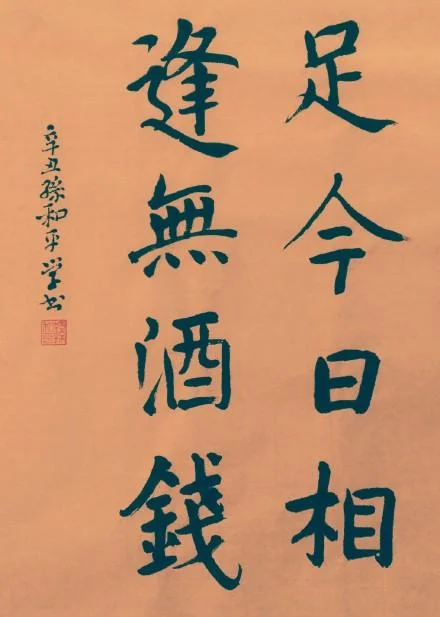 足今日相
逢無酒錢
辛丑孫和平学书